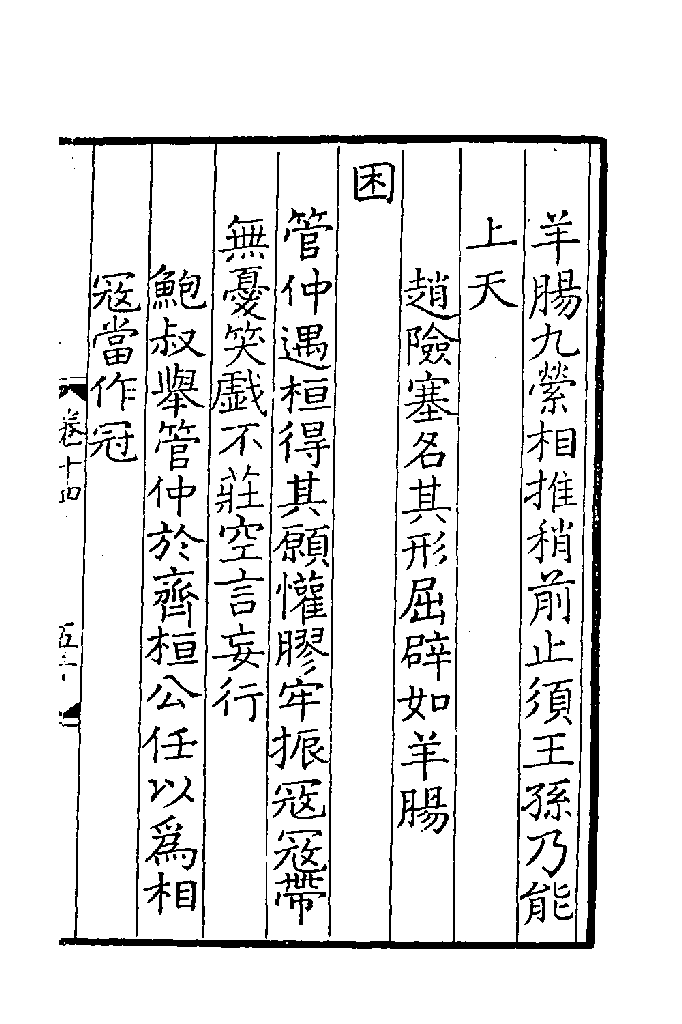 羊腸九縈相推稍前止須王孫乃能
上天
趙險塞名其形屈辟如羊腸
困
管仲遇桓得其願懽膠牢振冦冦帶
無憂笑戱不莊空言妄行
鮑叔舉管仲於齊桓公任以爲相
冦當作冠
卷十四
五十